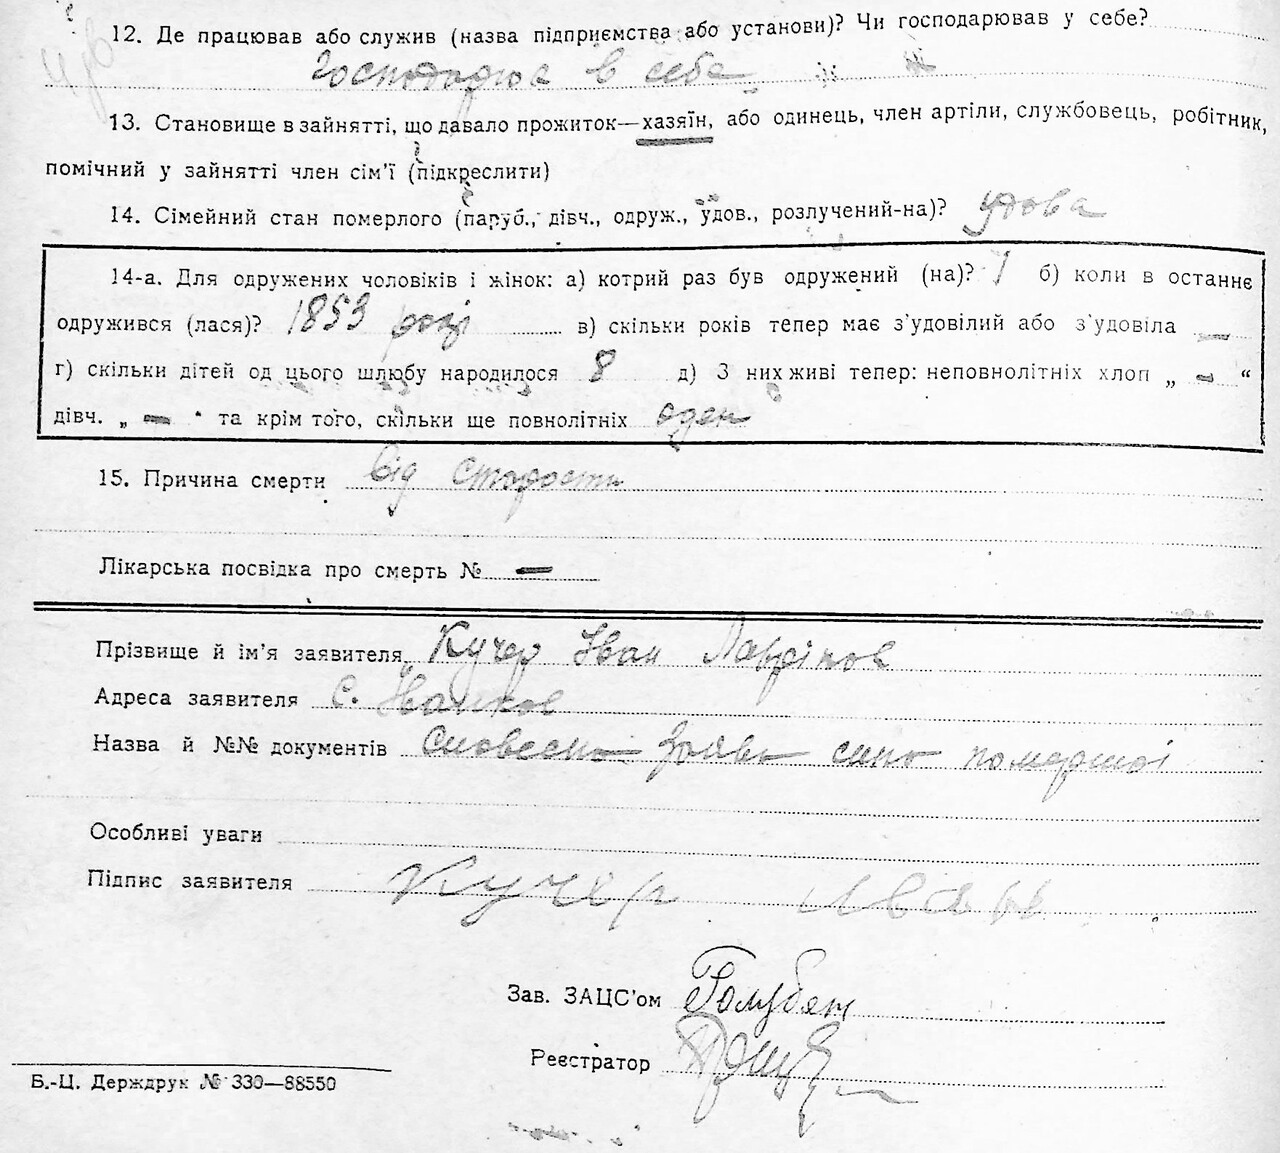 12. Де працював або служив (назва підприємства або установи)? Чи господарював у себе?
Господарюв в себе
13. Становище в зайнятті, що давало прожиток—хазяїн, або одинець, член артіли, службовець, робітник,
помічний у зайнятті член сім'ї (підкреслити)
14. Сімейний стан померлого (паруб., дівч., одруж., удов., розлучений-на)? удова
14-а. Для одружених чоловіків і жінок: а) котрий раз був одружений (на)? 1 б) коли в останнє
одружився (лася)? 1853 році в) скільки років тепер має з'удовілий або з'удовіла —
г) скільки дітей од цього шлюбу народилося 8 д) З них живі тепер: неповнолітніх хлоп „ — “
дівч. „ — “ та крім того, скільки ще повнолітніх оден
15. Причина смерти від старости
Лікарська посвідка про смерть № —
Прізвище й ім'я заявителя Кучер Іван Лаврінов
Адреса заявителя с. Іванков
Назва й №№ документів Словесна заява сина помершої
Особливі уваги
Підпис заявителя Кучер Іван
Зав. ЗАЦС'ом
Реєстратор
Б.-Ц. Держдрук № 330—88550